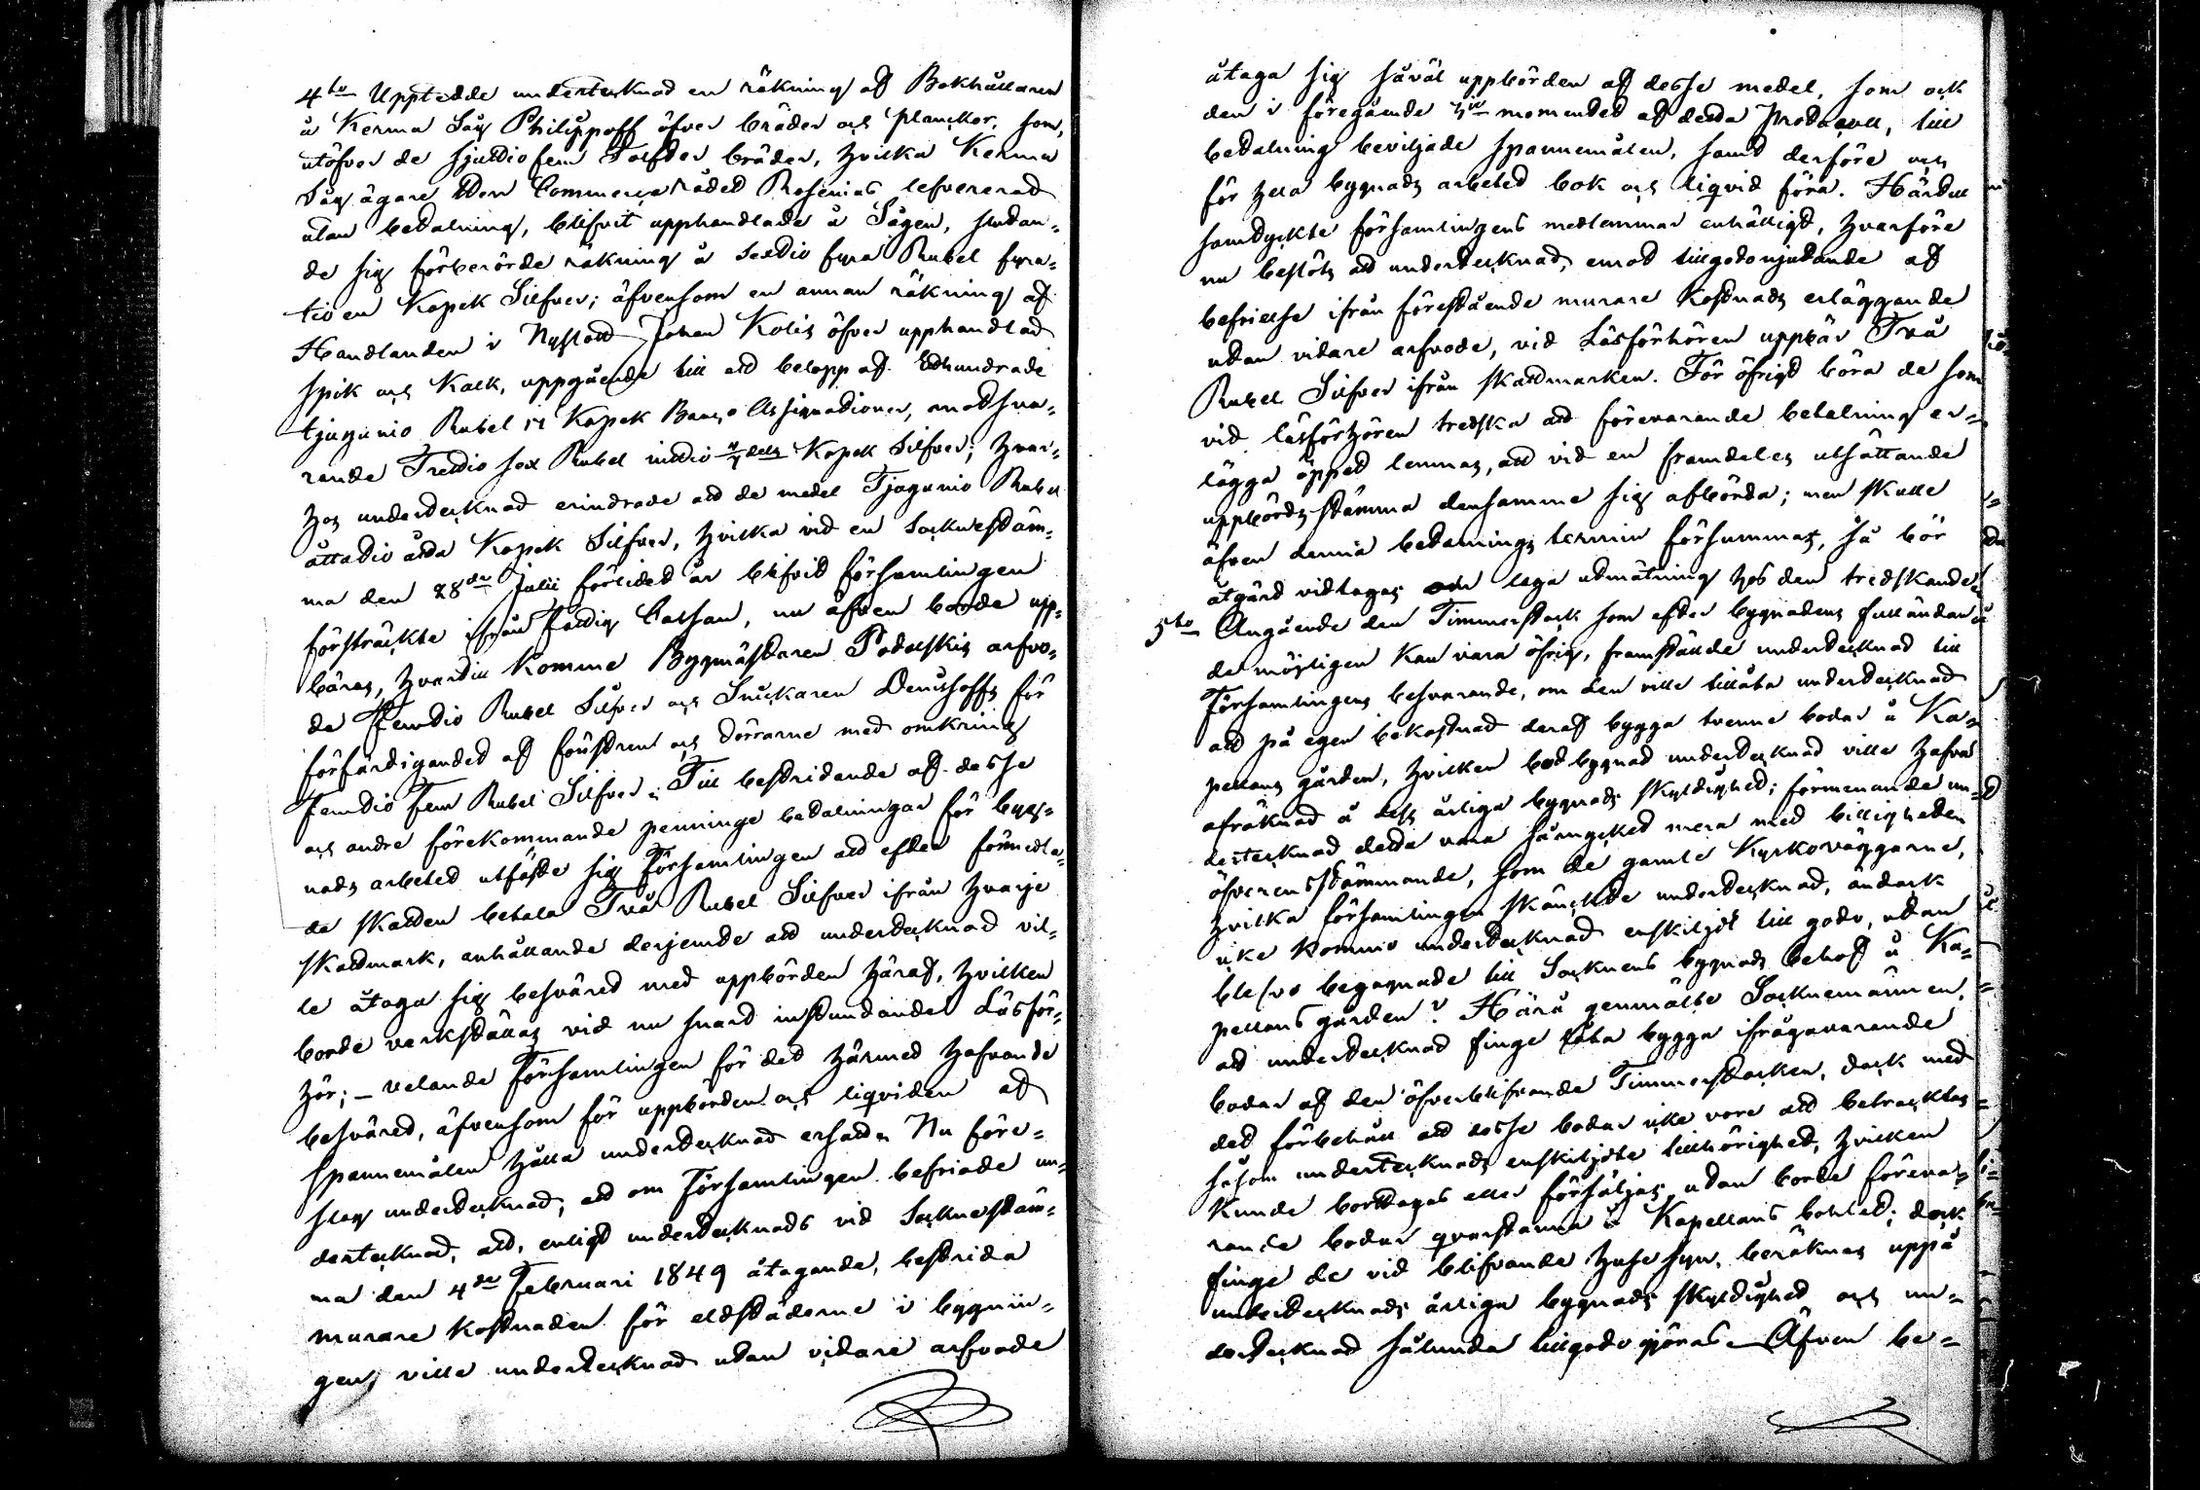 4to Upptedde undertecknad en räkning af Bokhållaren
å Kerma Såg Philippoff öfver bräder och Planckor, som,
utöfver de sjuttiofem Tolfter bräder, hvilka Kerma
Såg ägare Herr Commerce Rådet Rosenius lefvererad
utan betalning, blifvit upphandlade å Sågen, slutan=
de sig förberörde räkning å sextio fyra Rubel fyra=
tio en Kopek Silfver; äfvensom en annan räkning af
Handlanden i Nyslott Johan Kolis öfver upphandlad
spik och Kalk, uppgående till ett belopp af Etthundrade
tjugunio Rubel 14 Kopek Banco Assignationer, motsva=
rande Trettio sex Rubel nittio dels Kopek Silfver; hvar=
hos undertecknad erindrade att de medel Tjugunio Rubel
åttatio åtta Kopek Silfver, hvilka vid en Socknestäm=
ma den 28de Julii förlidet år blifvit församlingen
försträckte ifrån Fattig Cassan, nu äfven borde upp=
bäras, hvartill komme Byggmästaren Podelskis arfvo=
de Femtio Rubel Silfver och Snickaren Denishoffs för
förfärdigandet af fönstren och dörrarne med omkring
Femtio fem Rubel Silfver. Till bestridande af desse
och andre förekommande penninge betalningar för bygg=
nads arbetet utfäste sig Församlingen att efter förmedla=
de skatten betala Två Rubel Silfver ifrån hvarje
skattmark, anhållande derjemte att undertecknad vil=
le åtaga sig besväret med uppbörden häraf, hvilken
borde verkställas vid nu snart instundande Läsför=
hör; – velande Församlingen för det härmed hafvande
besväret, äfvensom för uppbörden och liqviden af
spannemålen hålla undertecknad ersatt. Nu före=
slog undertecknad, att om Församlingen befriade un=
dertecknad, att, enligt undertecknads vid Socknestäm=
ma den 4de Februari 1849 åtagande, bestrida
murare kostnaden för eldstäderne i byggnin=
gen, ville undertecknad utan vidare arfvode
åtaga sig såväl uppbörden af desse medel, som ock
den i föregående momentet af detta Protocoll, till
betalning beviljade spannemålen, samt derföre och
för hela byggnads arbetet bok och liqvid föra. Härtill
samtyckte församlingens medlemmar enhälligt, hvarföre
nu beslöts att undertecknad, emot tillgodonjutande af
befrielse ifrån föreståendе murare kostnads erläggande
utan vidare arfvode, vid Läsförhören uppbär Två
Rubel Silfver ifrån skattmarken. För öfrigt böra de som
vid läsförhören tredska att förevarande betalning er=
lägga öppet lemnas, att vid en framdeles utsättande
uppbörds stämma densamme sig afbörda; men skulle
äfven denna betalnings termin försummas, så bör
åtgärd vidtagas om laga utmätning hos den tredskande.
5to Angående den Timmerstock som efter byggnadens fulländan=
de möjligen kan vara öfrig, framställde undertecknad till
Församlingens besvarande, om den ville tillåta undertecknad
att på egen bekostnad deraf bygga tvenne bodar å Ka=
pellans gården, hvilken bod byggnad undertecknad ville hafva
afräknad å dess årliga byggnads skyldighet; förmenande un=
dertecknad detta vara såmycket mera med billigheten
öfverensstämmande, som de gamle Kyrkoväggarne,
hvilka församlingen skänckte undertecknad, ändock
icke kommo undertecknad enskiljdt till godo, utan
blefvo begagnade till Socknens byggnads behof å Ka=
pellans gården? Härå genmälte Socknemännen,
att undertecknad finge låta bygga ifrågavarande
bodar af den öfverblifvande Timmerstocken, dock med
det förbehåll att desse bodar icke vore att betracktas
såsom undertecknads enskiljdte tillhörighet, hvilken
kunde borttagas eller försäljas, utan borde föreva=
rande bodar qvarstanna å Kapellans bohlet; dock
finge de vid blifvande huse syn, beräknas uppå
undertecknads årliga byggnads skyldighet och un=
dertecknad sålunda tillgodo göras. – Äfven be=